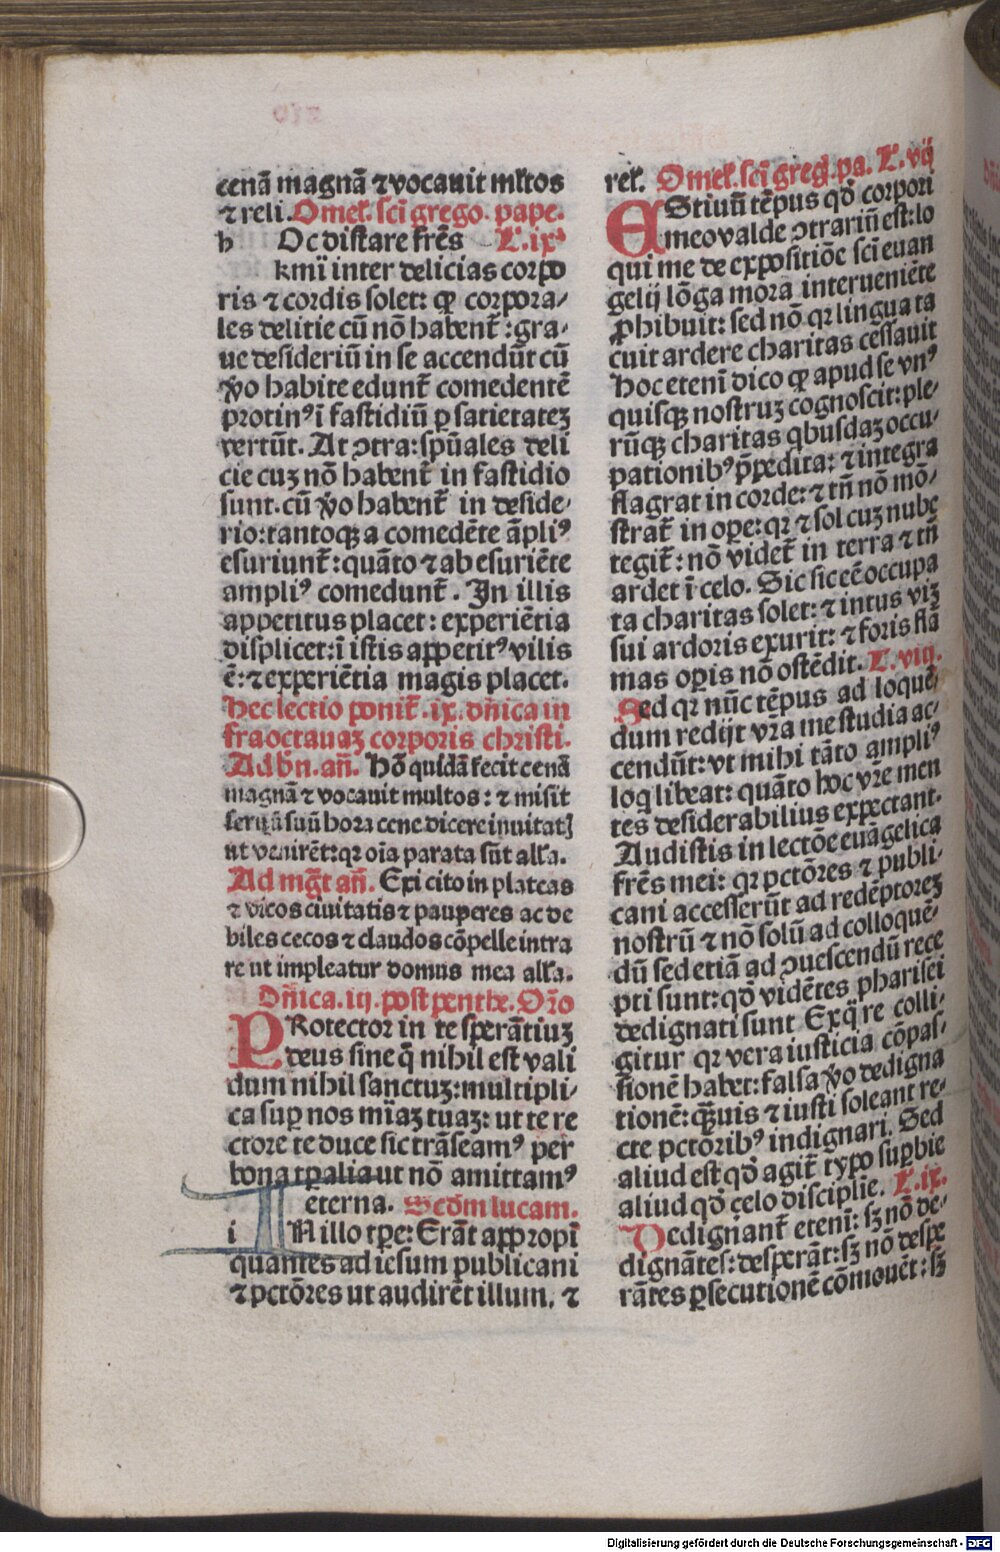 cenā magnā ⁊ vocauit ml̄tos
⁊ reli. Omel̓. sc̄i grego. pape.
h Oc distare fr̄es L̓.ixᵃ
kmi inter delicias corpo
ris ⁊ cordis solet: qꝫ corpora⸗
les delitie cū nō habent̄: gra⸗
ue desideriū in se accendūt cū
ꝟo habite edunt̄ comedentē
protinꝰ ī fastidiū ꝑ satietateꝫ
vertūt. At ↄtra: spūales deli
cie cuꝫ nō habent̄ in fastidio
sunt. cū ꝟo habent̄ in deside⸗
rio: tantoqꝫ a comedēte āpliꝰ
esuriunt̄: quāto ⁊ ab esuriēte
ampliꝰ comedunt̄. In illis
appetitus placet: experiētia
displicet: ī istis appetitꝰ vilis
ē: ⁊ experiētia magis placet.
Hec lectio ponit̄. ix. dn̄ica in
fra octauaꝫ corporis christi.
Ad bn̄. an̄. Hō quidā fecit cenā
magnā ⁊ vocauit multos: ⁊ misit
seruū suū hora cene dicere inuitatꝭ
ut venirēt: qꝛ oīa parata sūt all̓a.
Ad mḡt an̄. Exi cito in plateas
⁊ vicos ciuitatis ⁊ pauperes ac de
biles cecos ⁊ claudos cōpelle intra
re ut impleatur domus mea all̓a.
Dn̄ica. iij. post penthe. Oro
PRotector in te sperātiuꝫ
deus sine q̄ nihil est vali
dum nihil sanctuꝫ: multipli⸗
ca suꝑ nos mīaꝫ tuaꝫ: ut te re
ctore te duce sic trāseamꝰ per
bona tꝑalia ut nō amittamꝰ
eterna. Scd̄m lucam.
i IN illo tꝑe: Erāt appropī
quantes ad iesum publicani
⁊ pctōres ut audirēt illum. ⁊
rel̓. Omel̓. sc̄i greg. pa. L̓. vij
EStiuū tēpus qd̄ corpori
meo valde ↄtrariū est: lo
qui me de expositiōe sc̄i euan
gelij lōga mora interueniēte
ꝓhibuit: sed nō qꝛ lingua ta
cuit ardere charitas cessauit
Hoc etenī dico qꝫ apud se vnꝰ
quisqꝫ nostruꝫ cognoscit: ple⸗
rūqꝫ charitas qbusdaꝫ occu⸗
pationibꝰ p̄pedita: ⁊ integra
flagrat in corde: ⁊ tn̄ nō mō⸗
strat̄ in oꝑe: qꝛ ⁊ sol cuꝫ nube
tegit̄: nō videt̄ in terra ⁊ tn̄
ardet ī celo. Sic sic eē occupa
ta charitas solet: ⁊ intus viꝫ
sui ardoris exurit: ⁊ foris flā
mas oꝑis nō ostēdit. L̓. viij.
Sed qꝛ nūc tēpus ad loquē⸗
dum redijt vr̄a me studia ac⸗
cendūt: vt mihi tāto ampliꝰ
loq libeat: quāto hoc vr̄e men
tes desiderabilius expectant.
Audistis in lectōe euāgelica
fr̄es mei: qꝛ pctōres ⁊ publi⸗
cani accesserūt ad redēptoreꝫ
nostrū ⁊ nō solū ad colloquē⸗
dū sed etiā ad ↄuescendū rece
pti sunt: qd̄ vidētes pharisei
dedignati sunt Ex q̄ re colli⸗
gitur qꝛ vera iusticia cōpas⸗
sionē habet: falsa ꝟo dedigna
tionē: qꝫuis ⁊ iusti soleant re⸗
cte pctōribꝰ indignari. Sed
aliud est qd̄ agit̄ typo suꝑbie
aliud qd̄ celo discipline. L̓. ix.
Dedignant̄ etenī: sꝫ nō de⸗
dignātes: desperāt: sꝫ nō despe
rātes ꝑsecutionē cōmouēt: sꝫ
Digitalisierung gefördert durch die Deutsche Forschungsgemeinschaft - DFG